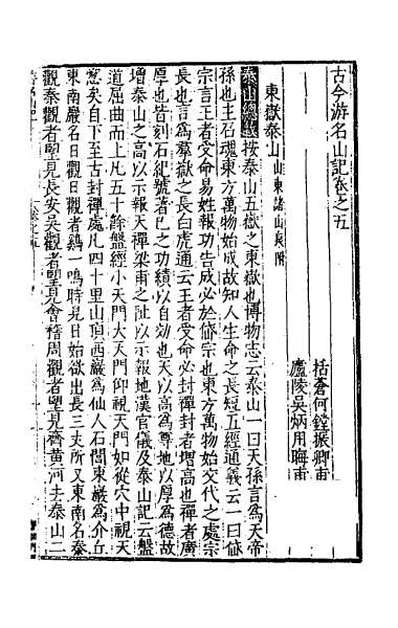 古今游名山記卷之五
括蒼何鏜振卿甫
廬陵吳炳用晦甫
東嶽泰山山東諸山泉附
泰山總錄按泰山五嶽之東嶽也博物志云泰山一曰天孫言爲天帝
孫也主召魂東方萬物始成故知人生命之長短五經通義云一曰岱
宗言王者受命易姓報功告成必於岱宗也東方萬物始交代之處宗
長也言爲羣嶽之長白虎通云王者受命必封禪封者增高也禪者廣
厚也皆刻石紀號著己之功績以自効也天以高爲尊地以厚爲德故
增泰山之高以示報天禪梁甫之趾以示報地漢官儀及泰山記云盤
道屈曲而上凡五十餘盤經小天門大天門仰視天門如從穴中視天
窓矣自下至古封禪處凡四十里山頂西巖爲仙人石閭東巖爲介丘
東南巖名日觀日觀者雞一鳴時見日始欲出長三丈所又東南名秦
觀秦觀者望見長安吳觀者望見會稽周觀者望見齊黃河去泰山二